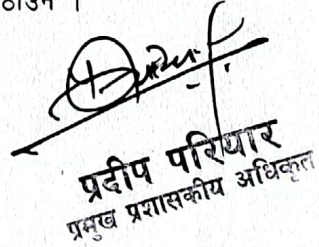 प्रदीप परियार
प्रमुख प्रशासकीय अधिकृत